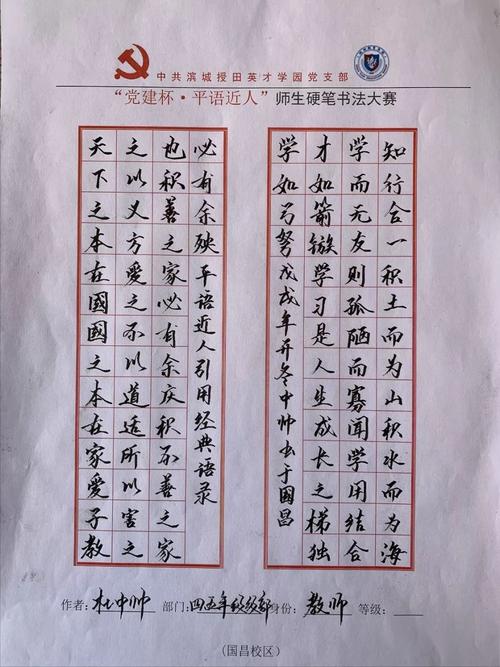 中共滨城授田英才学园党支部
“党建杯·平语近人”师生硬笔书法大赛
天下之本在國國之本在家爱子教
之以义方爱之不以道适所以害之
也积善之家必有余庆积不善之家
必有余殃平语近人引用经典语录
学如弓努戊戌年开冬中帅书于国昌
才如箭镞学习是人生成长之梯独
学而无友则孤陋而寡闻学用结合
知行合一积土而为山积水而为海
作者：杜中帅 部门：四五年级级部 身份：教师 等级：
（国昌校区）